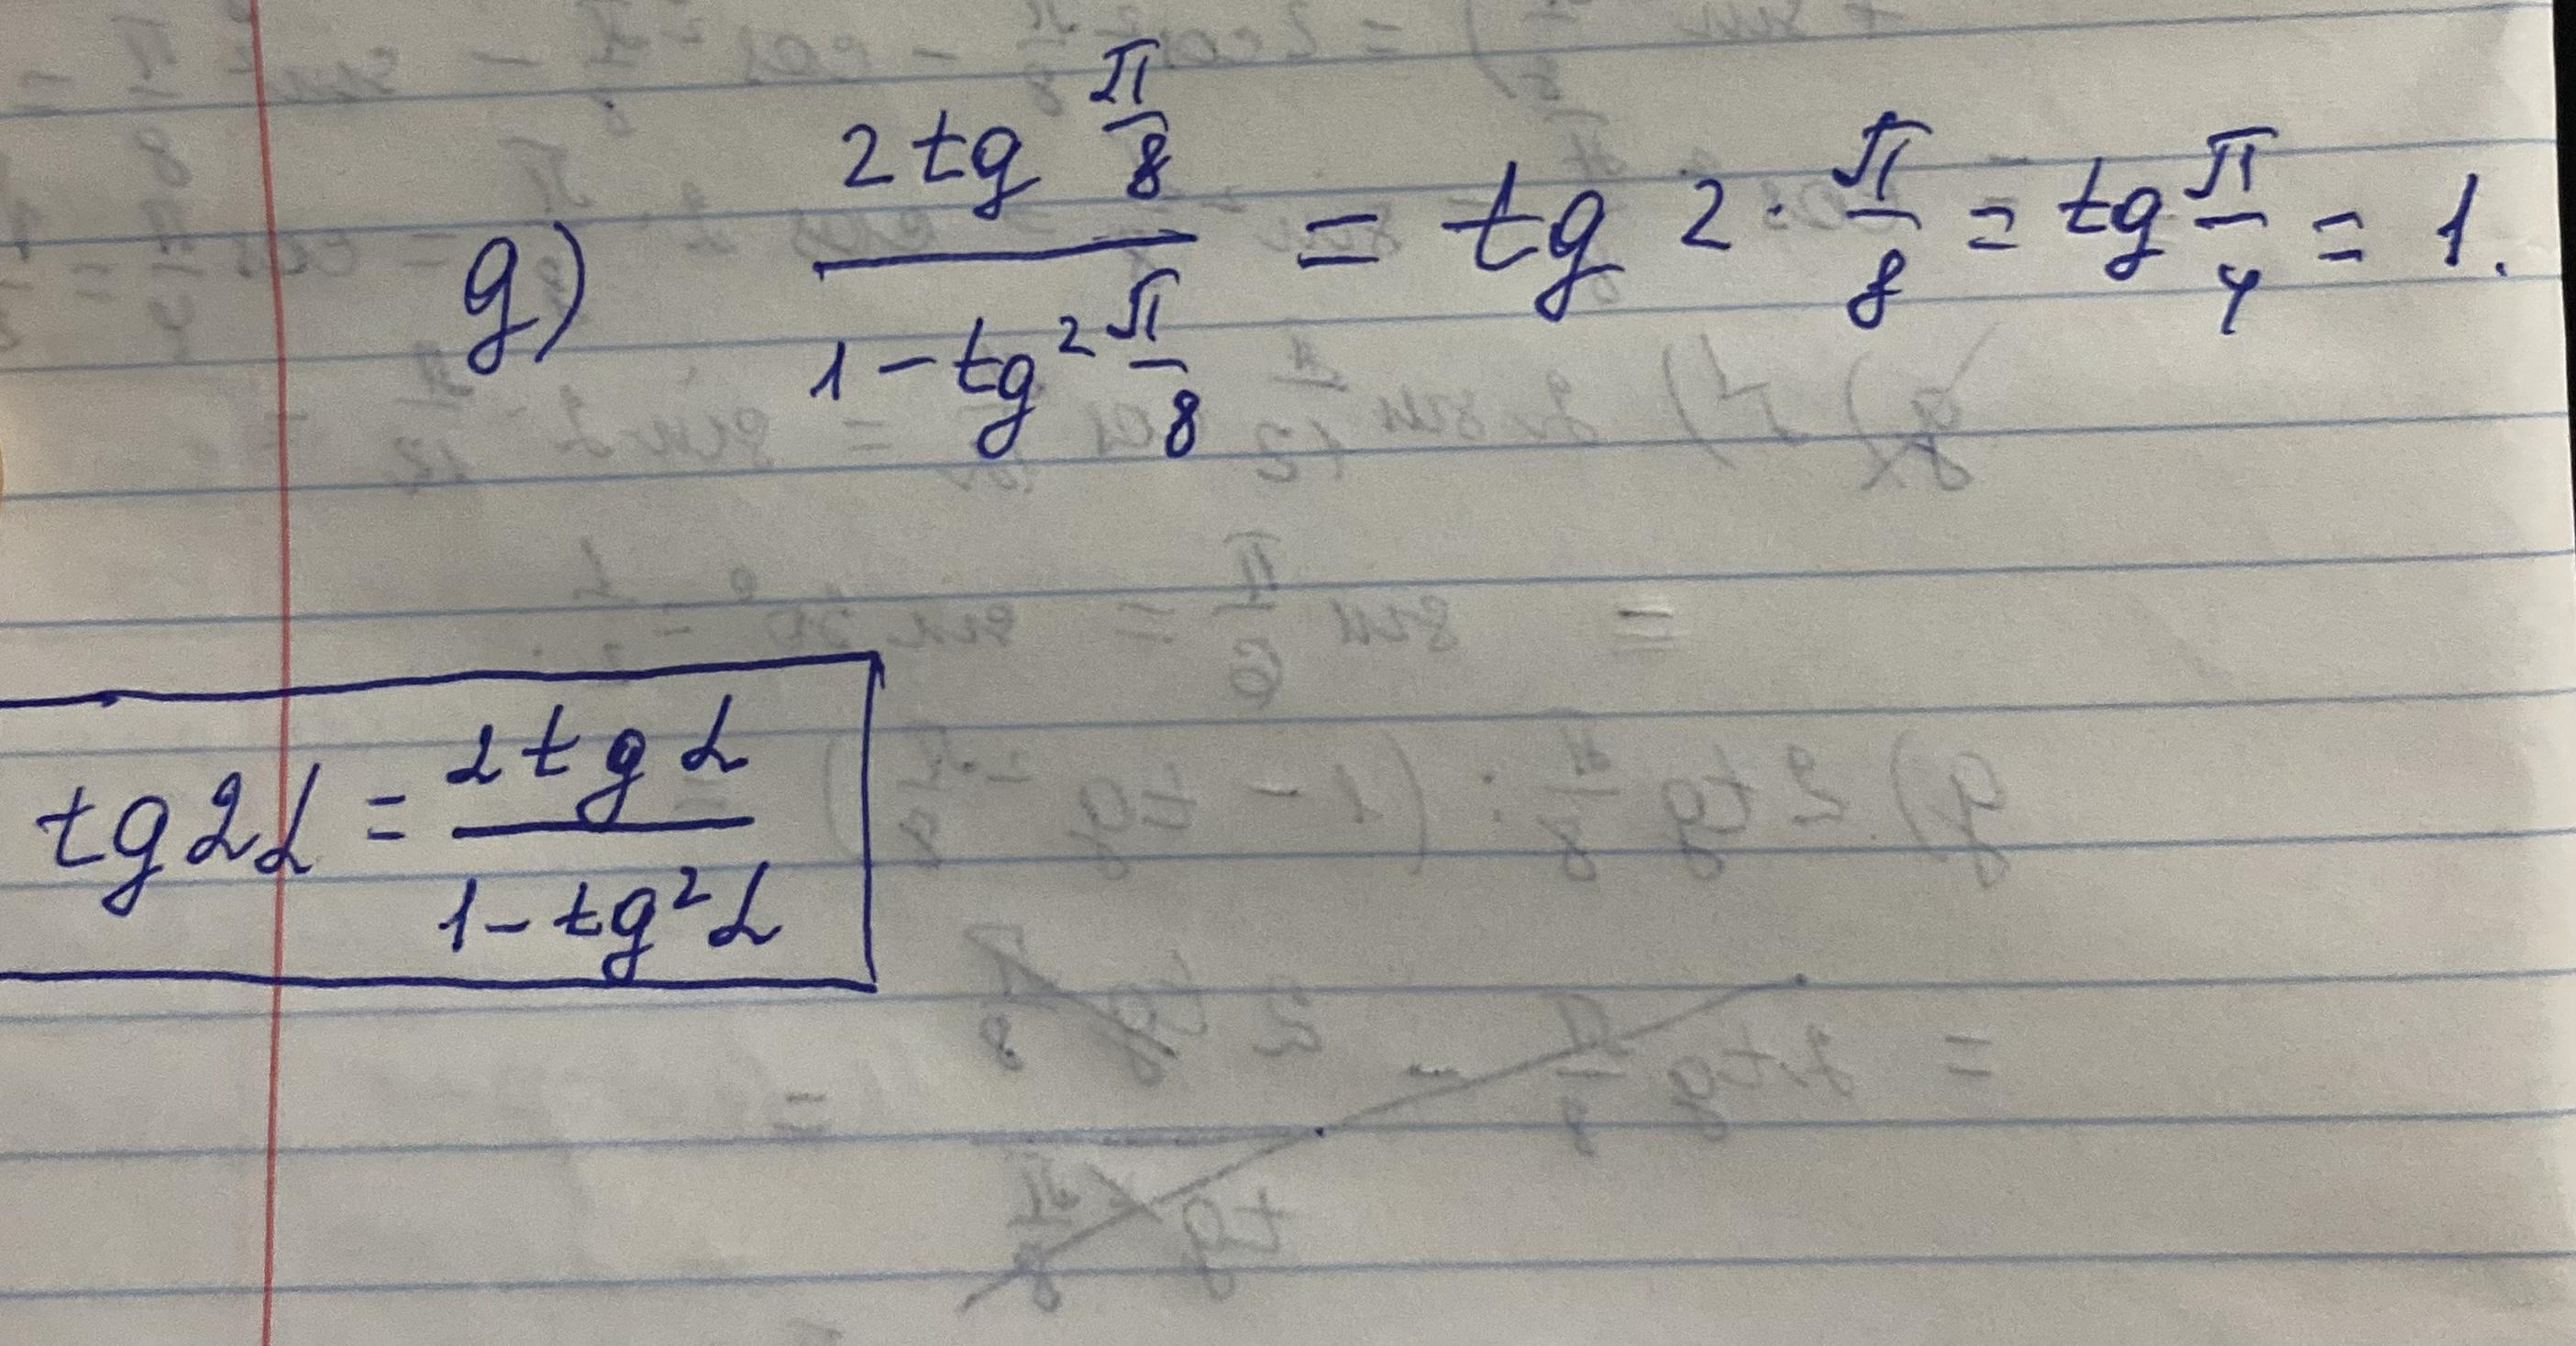 g) 2 tg π/8 / 1 - tg² π/8 = tg 2 · π/8 = tg π/4 = 1.
tg 2α = 2 tg α / 1 - tg² α